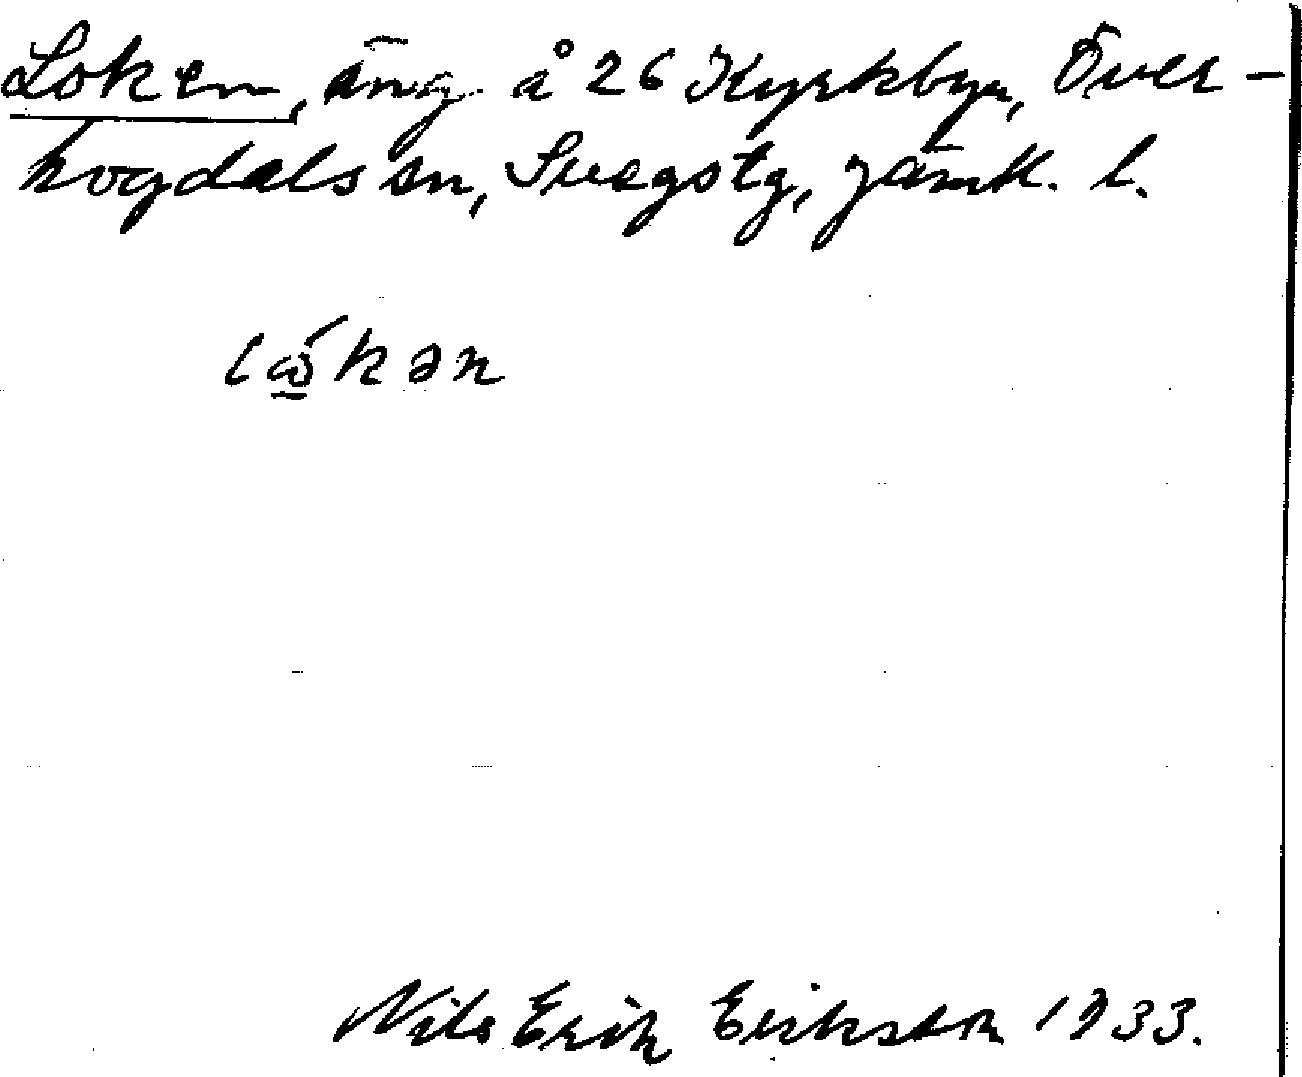 Loken, äng å 26 Kyrkbyn, Över-
hogdals sn, Svegs tg, Jämtl. l.
lώ̱kən
Nils Erik Eriksson 1933.